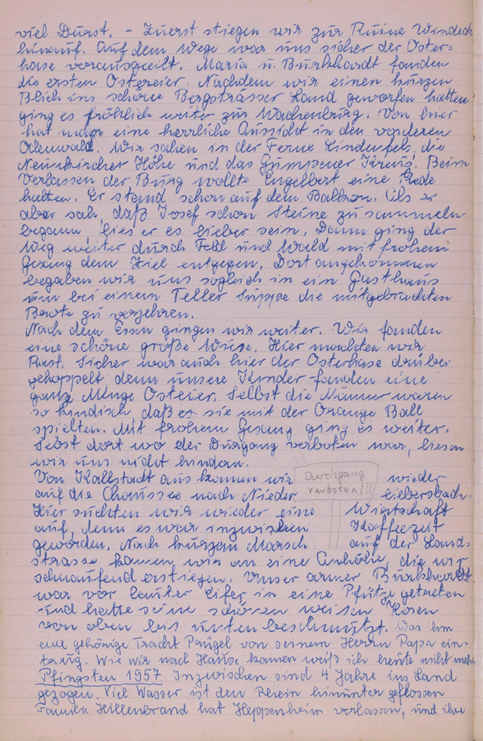 viel Durst. - Zuerst stiegen wir zur Ruine Windeck
hinauf. Auf dem Wege war uns sicher der Oster-
hase vorausgeeilt. Maria u. Burkhardt fanden
die ersten Ostereier. Nachdem wir einen kurzen
Blick ins schöne Bergsträsser Land geworfen hatten
ging es fröhlich weiter zur Wachenburg. Von hier
hat man eine herrliche Aussicht in den vorderen
Odenwald. Wir sahen in der Ferne Lindenfels, die
Neunkircher Höhe und das Gumpener Kreuz. Beim
Verlassen der Burg wollte Engelbert eine Rede
halten. Er stand schon auf dem Balkon. Als er
aber sah, daß Josef schon Steine zu sammeln
begann, lies er es lieber sein. Dann ging der
Weg weiter durch Feld und Wald mit frohem
Gesang dem Ziel entgegen. Dort angekommen
begaben wir uns sogleich in ein Gasthaus
um bei einem Teller Suppe die mitgebrachten
Brote zu verzehren.
Nach dem Essen gingen wir weiter. Wir fanden
eine schöne große Wiese. Hier machten wir
Rast. Sicher war auch hier der Osterhase darüber
gehoppelt denn unsere Kinder fanden eine
ganze Menge Ostereier. Selbst die Männer waren
so kindisch daß es sie mit der Orange Ball
spielten. Mit frohem Gesang ging es weiter.
Selbst dort wo der Durgang verboten war, liesen
wir uns nicht hindern.
Von Kallstadt aus kamen wir wieder
Durchgang
verboten!!!
auf die Chaussee nach Nieder liebersbach.
Hier suchten wir wieder eine Wirtschaft
auf, denn es war inzwischen Kaffeezeit
geworden. Nach kurzem Marsch auf der Land-
strasse kamen wir an eine Anhöhe, die wir
schnaufend erstiegen. Unser armer Burkhardt
war vor lauter Eifer in eine Pfütze getreten
und hatte seine schönen weisen Hosen
von oben bis unten beschmutzt. Was ihm
eine gehörige Tracht Prügel von seinem Herrn Papa ein-
trug. Wie wir nach Hause kamen weiß ich heute nicht mehr.
Pfingsten 1957 Inzwischen sind 4 Jahre ins Land
gezogen. Viel Wasser ist den Rhein hinunter geflossen.
Familie Hillenbrand hat Heppenheim verlassen, und ihre